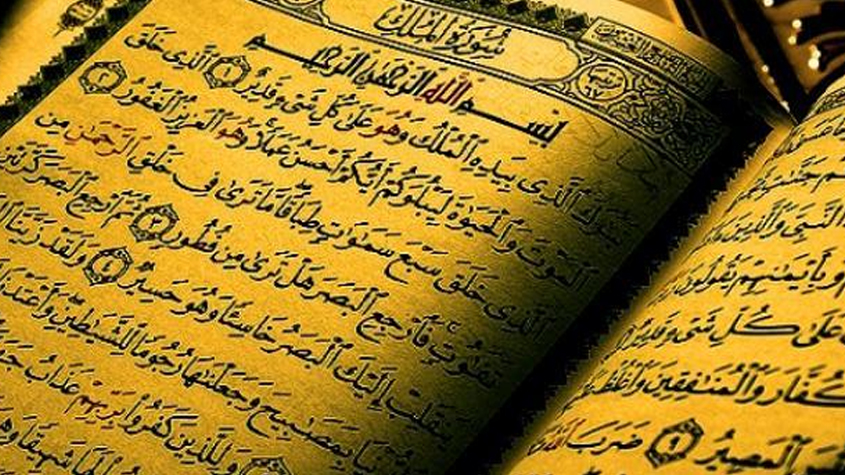 سُورَةُ المُلْكِ
بِسْمِ ٱللَّهِ ٱلرَّحْمَٰنِ ٱلرَّحِيمِ
تَبَٰرَكَ ٱلَّذِى بِيَدِهِ ٱلْمُلْكُ وَهُوَ عَلَىٰ كُلِّ شَىْءٍ قَدِيرٌ ١ ٱلَّذِى خَلَقَ
ٱلْمَوْتَ وَٱلْحَيَوٰةَ لِيَبْلُوَكُمْ أَيُّكُمْ أَحْسَنُ عَمَلًا وَهُوَ ٱلْعَزِيزُ ٱلْغَفُورُ ٢
ٱلَّذِى خَلَقَ سَبْعَ سَمَٰوَٰتٍ طِبَاقًا مَّا تَرَىٰ فِى خَلْقِ ٱلرَّحْمَٰنِ مِن
تَفَٰوُتٍ فَٱرْجِعِ ٱلْبَصَرَ هَلْ تَرَىٰ مِن فُطُورٍ ٣ ثُمَّ ٱرْجِعِ ٱلْبَصَرَ كَرَّتَيْنِ
يَنقَلِبْ إِلَيْكَ ٱلْبَصَرُ خَاسِئًا وَهُوَ حَسِيرٌ ٤ وَلَقَدْ زَيَّنَّا
بِمَصَٰبِيحَ وَجَعَلْنَٰهَا رُجُومًا لِّلشَّيَٰطِينِ وَأَعْتَدْنَا
وَلِلَّذِينَ كَفَرُوا۟ بِرَبِّهِمْ عَذَابُ
شَهِيقًا
ٱلنَّبِىَّ وَٱلَّذِينَ
وَبِأَيْمَٰنِهِمْ يَقُولُونَ
عَلَىٰ كُلِّ شَىْءٍ قَدِيرٌ
وَٱلْمُنَٰفِقِينَ وَٱغْلُظْ
ٱلْمَصِيرُ ٩ ضَرَبَ ٱللَّهُ